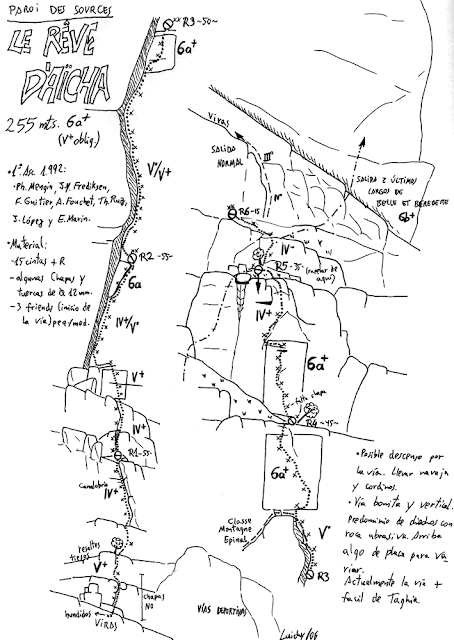 PAROI DES SOURCES
LE RÊVE
D'AÏCHA
255 mts. 6a+
(V+ oblig.)
•1ª Asc. 1.992:
S. López y E. Marín.
•Material:
-15 cintas + R
-algunas chapas y
tuercas de Ø 12 mm.
-3 friends (inicio de
la vía) peq/med.
R3 ~50~
6a+
V°/V+
R2 ~55~
6a
IV+/V°
V+
IV+
R1 ~55~
Canalobra
IV+
resaltes
tiesos
V+
chapas
NO
hundidos
VIRAS
VÍAS DEPORTIVAS
Luichy/08
Viras
SALIDA
NORMAL
III°
IV°
SALIDA 2 ÚLTIMOS
LARGOS DE
BELLE ET BEREBERE
6b+
R6 ~15~
IV~
R5 ~35~
(rapelar de
aquí)
IV+
6a+
falta chapa
R4 ~45~
6a+
Classe
Montagne
Epinal
V°
R3
•Posible descenso por
la vía. Llevar navaja
y cordinos.
•Vía bonita y vertical.
Predominio de diedros con
roca abrasiva. Arriba
algo de placa para va
riar.
Actualmente la vía +
facil de Taghia.